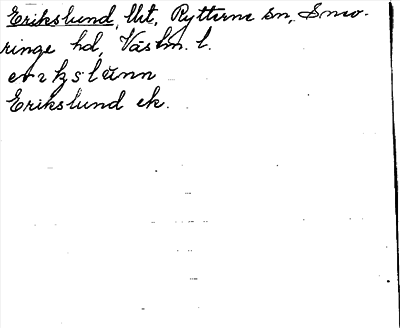 Erikslund, Utt, Rytterne sn, Snev-
ringe hd, Västm. l.
Erikslund ek.